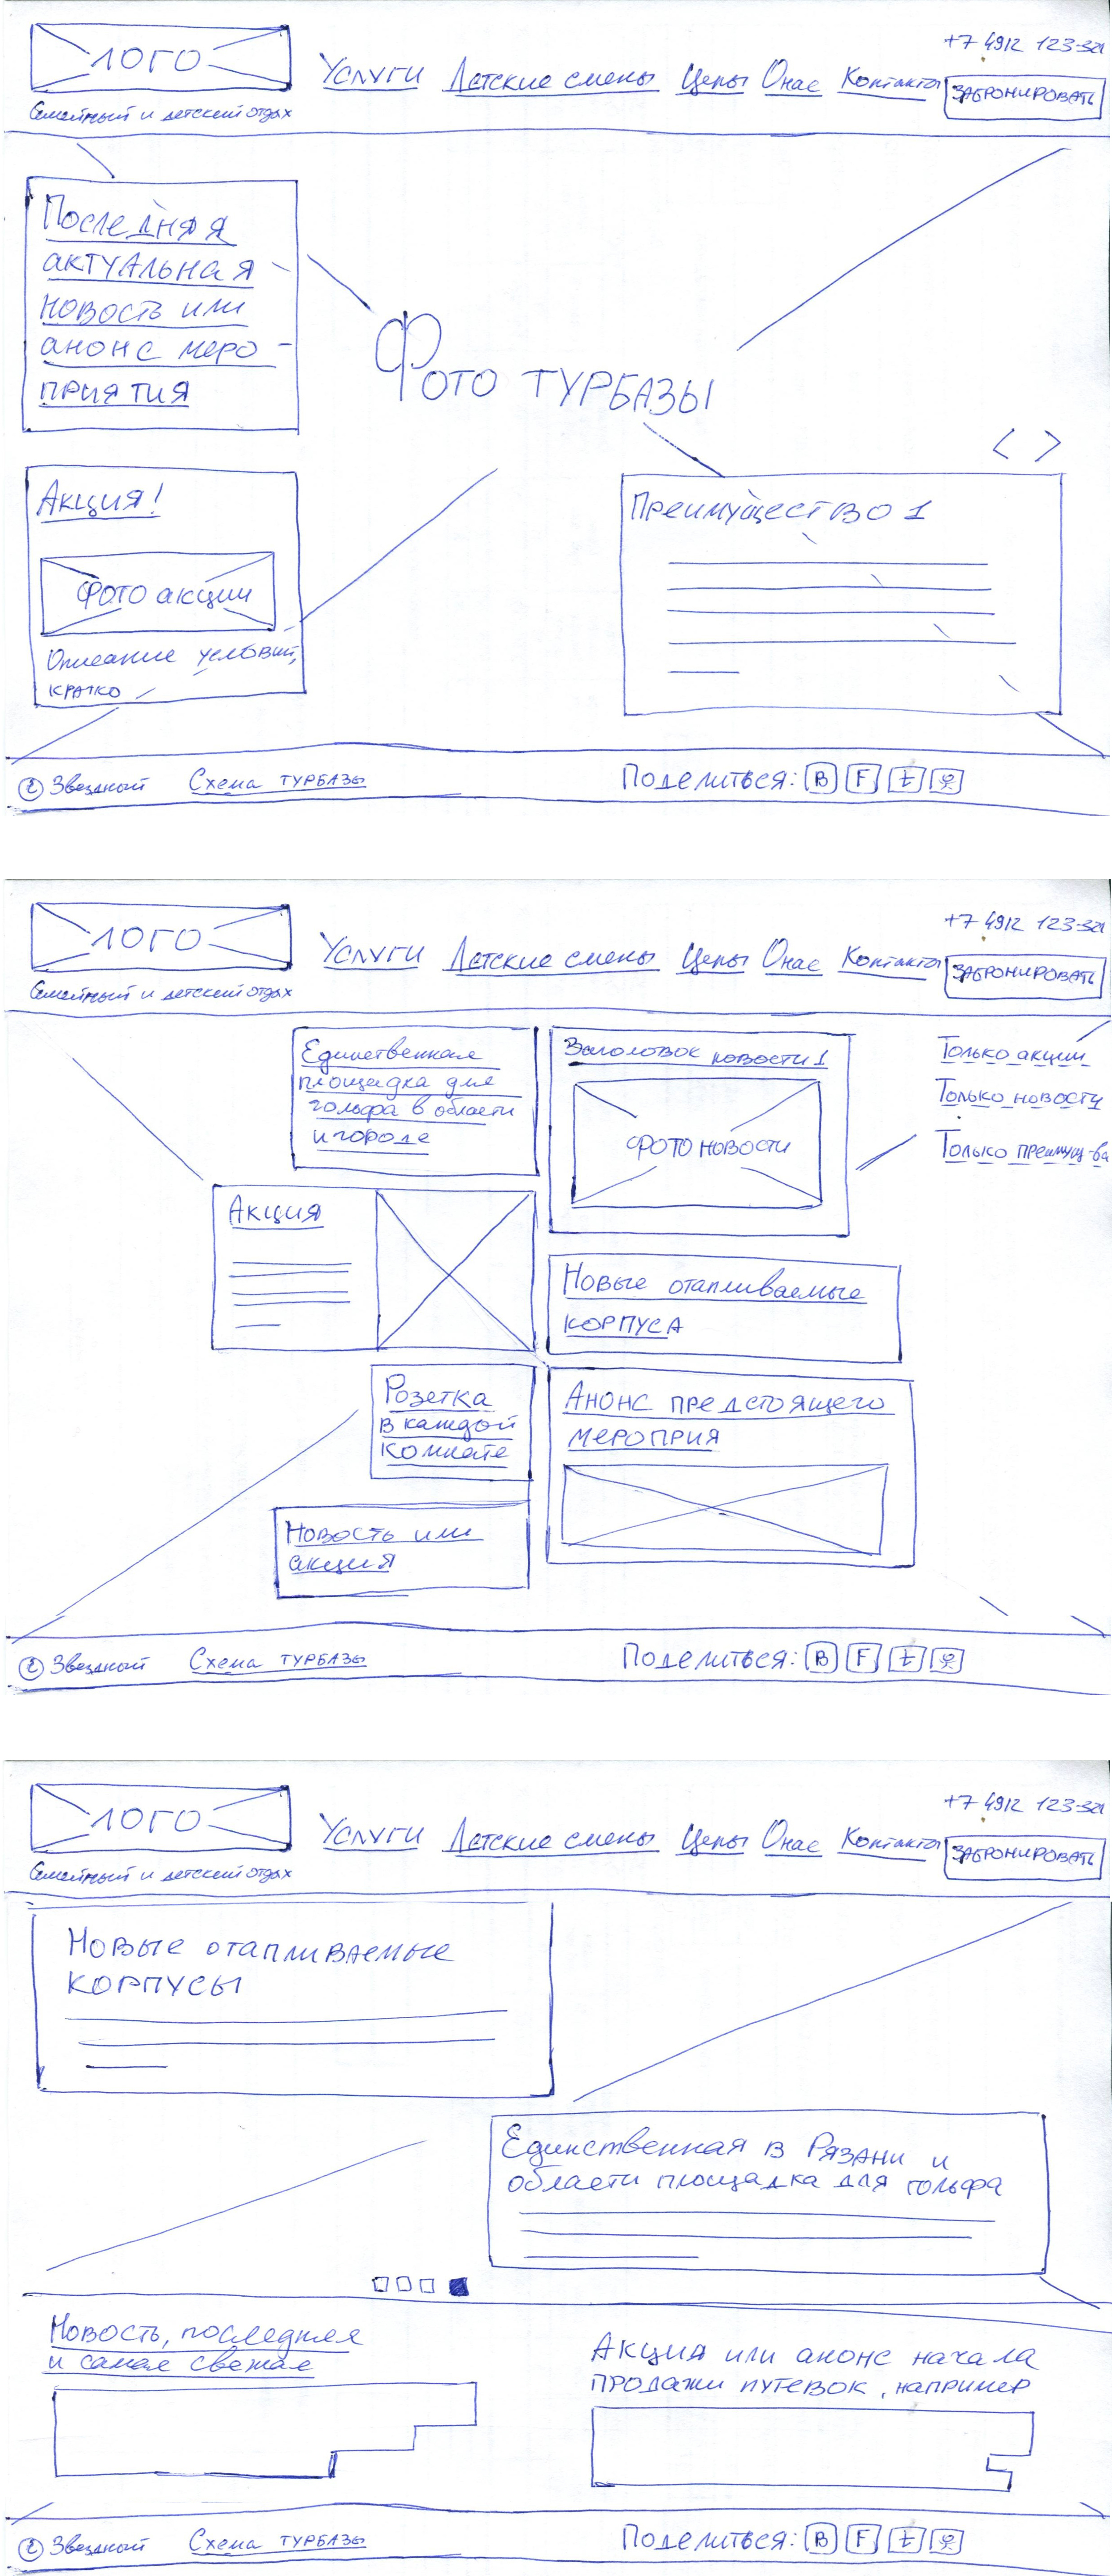 ЛОГО
Семейный и детский отдых
Услуги Детские смены Цены О нас Контакты
+7 4912 123-321
ЗАБРОНИРОВАТЬ
Последняя
актуальная
новость или
анонс меро-
приятия
Фото турбазы
< >
Акция!
Фото акции
Описание условий,
кратко
Преимущество 1
© Звездный Схема турбазы Поделиться: В F t
ЛОГО
Семейный и детский отдых
Услуги Детские смены Цены О нас Контакты
+7 4912 123-321
ЗАБРОНИРОВАТЬ
Единственная
площадка для
гольфа в области
и городе
Заголовок новости 1
Фото новости
Только акции
Только новости
Только преимущ-ва
Акция
Новые отапливаемые
корпуса
Розетка
в каждой
комнате
Анонс предстоящего
мероприя
Новость или
акция
© Звездный Схема турбазы Поделиться: В F t
ЛОГО
Семейный и детский отдых
Услуги Детские смены Цены О нас Контакты
+7 4912 123-321
ЗАБРОНИРОВАТЬ
Новые отапливаемые
корпусы
Единственная в Рязани и
области площадка для гольфа
Новость, последняя
и самая свежая
Акция или анонс начала
продажи путевок, например
© Звездный Схема турбазы Поделиться: В F t